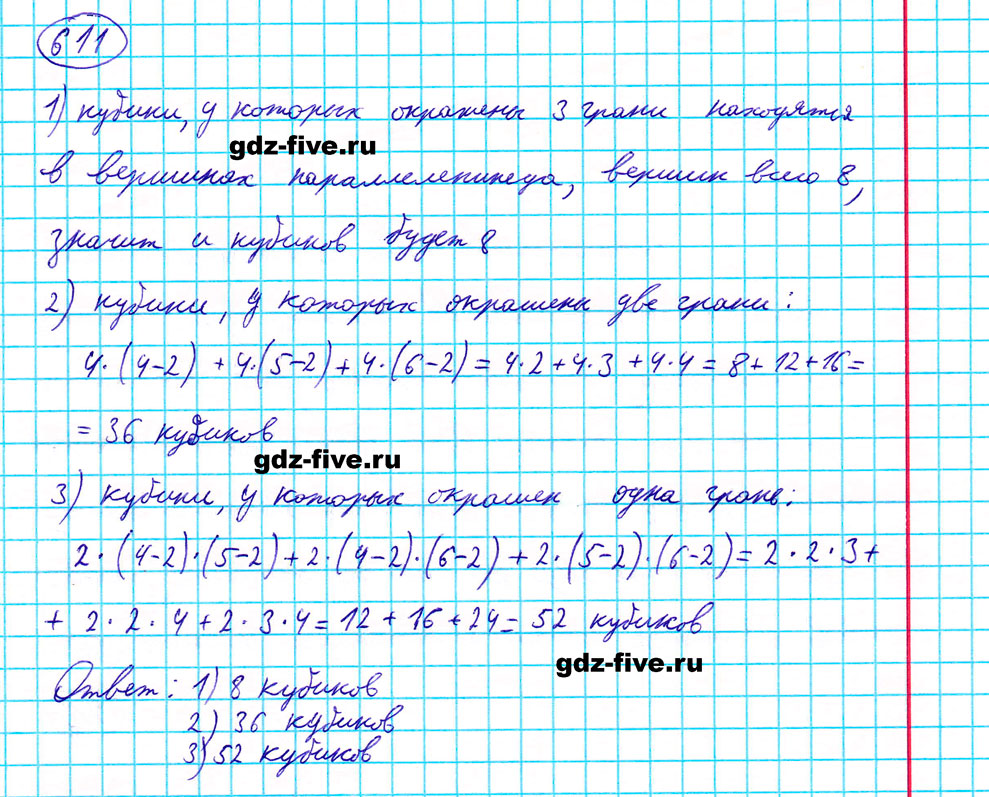 611
1) кубики, у которых окрашены 3 грани находятся
gdz-five.ru
в вершинах параллелепипеда, вершин всего 8,
значит и кубиков будет 8
2) кубики, у которых окрашены две грани:
4·(4-2) + 4·(5-2) + 4·(6-2) = 4·2 + 4·3 + 4·4 = 8 + 12 + 16 =
= 36 кубиков
gdz-five.ru
3) кубики, у которых окрашен одна грань:
2·(4-2)·(5-2) + 2·(4-2)·(6-2) + 2·(5-2)·(6-2) = 2·2·3 +
+ 2·2·4 + 2·3·4 = 12 + 16 + 24 = 52 кубиков
gdz-five.ru
Ответ: 1) 8 кубиков
2) 36 кубиков
3) 52 кубиков